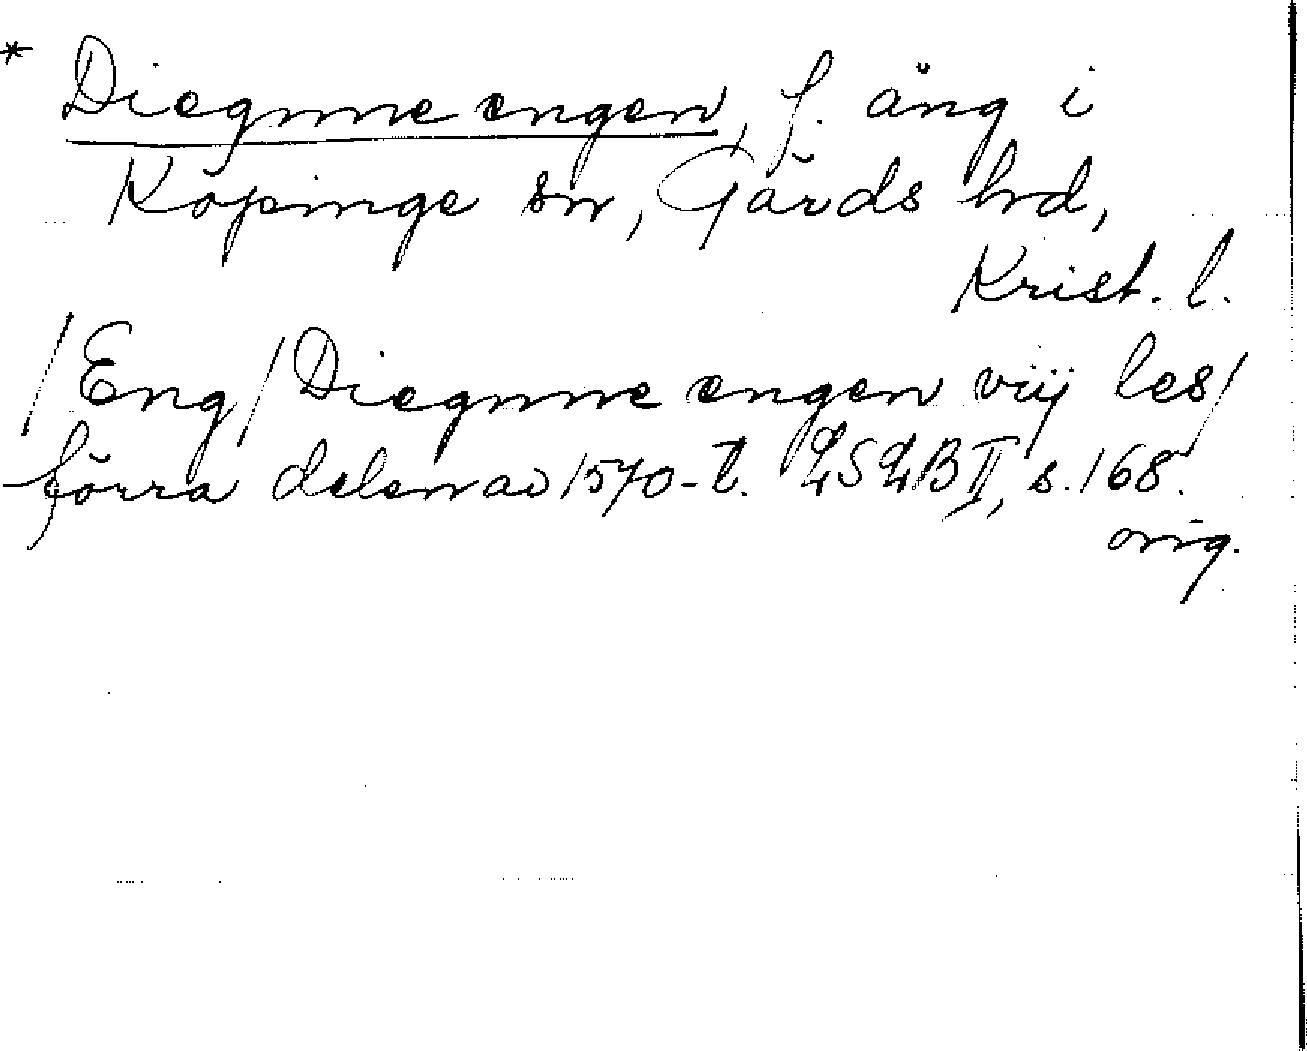 * Diegnneengen, f. äng i
Köpinge sn, Gärds hd,
Krist. l.
/Eng/Diegnneengen viij les/
förra delen av 1570-t. LSLB II, s. 168.
orig.